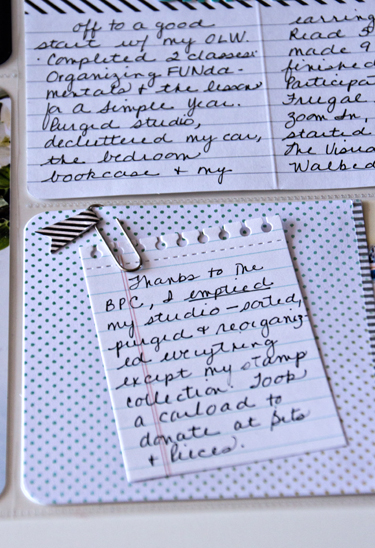 off to a good
start w/ my OLW.
· Completed 2 classes:
Organizing FUNda-
mentals & the lesson
for a simple year.
Purged studio,
decluttered my car,
the bedroom
bookcase & my
earring
Read 3
made 9
finished
Participat
Frugal
Zoom In,
started
The Visua
Walbed
Thanks to the
BPC, I emptied
my studio - sorted,
purged & reorganiz-
ed everything
except my stamp
collection. Took
a carload to
donate at Bits
& Pieces.